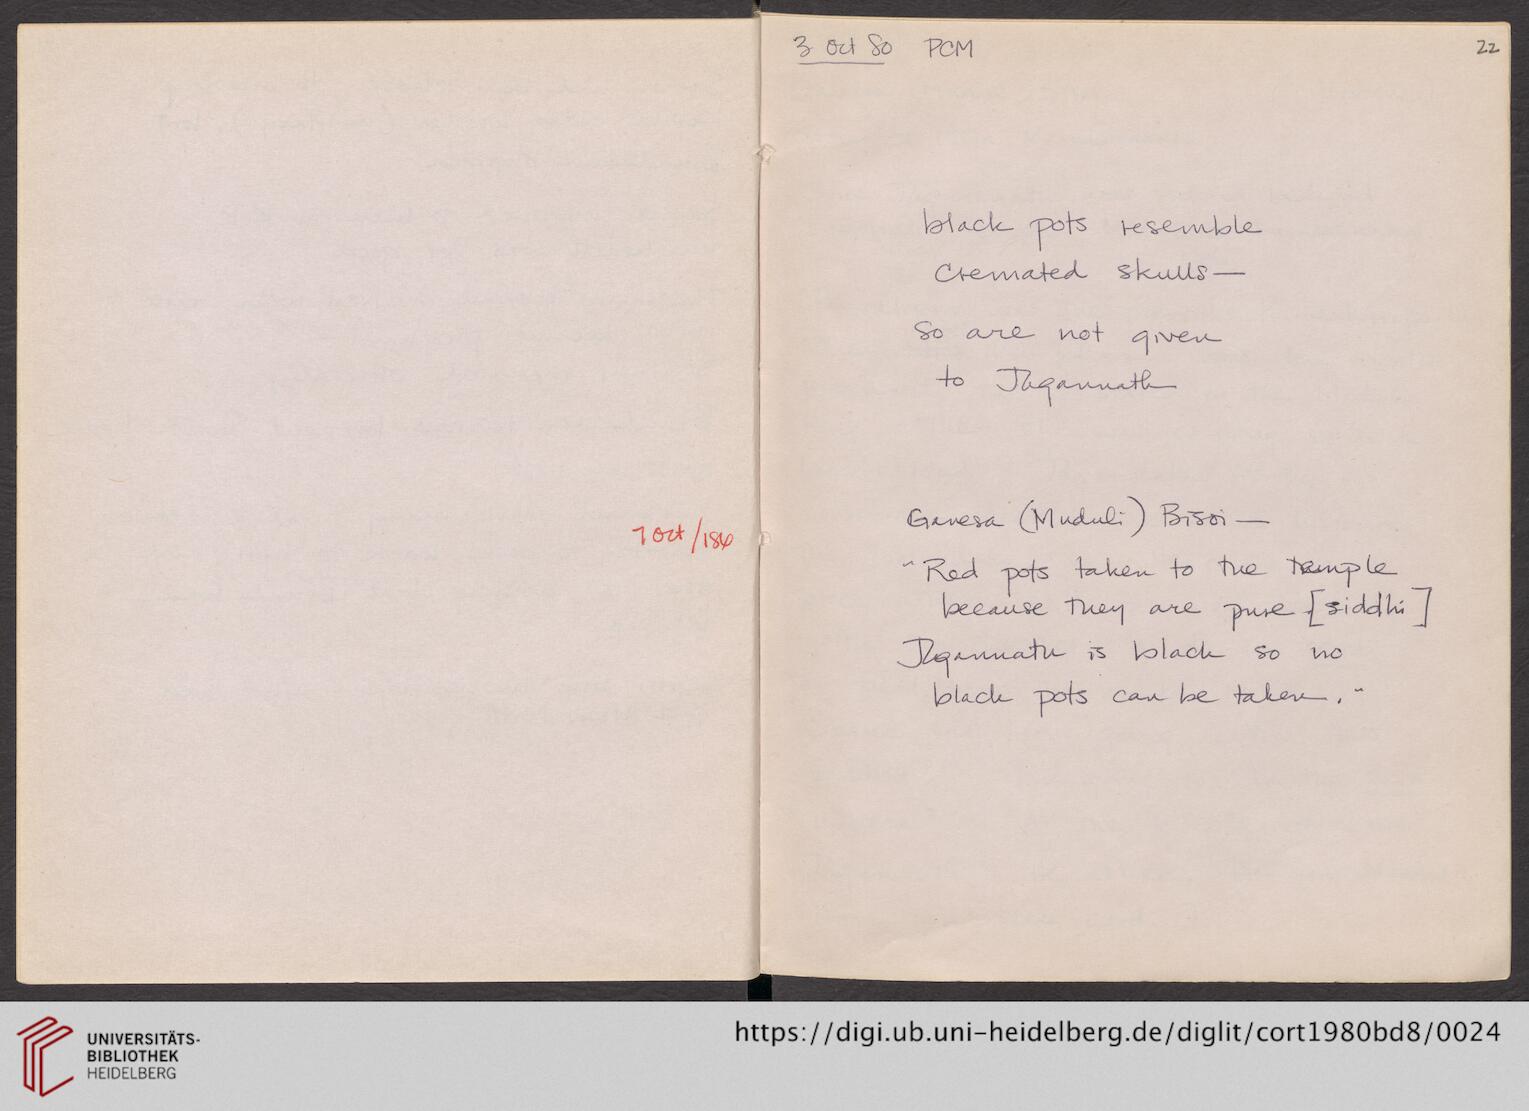 7 Oct/186
3 Oct 80 PCM
22
black pots resemble
cremated skulls—
so are not given
to Jagannath
Ganesa (Muduli) Bisoi —
"Red pots taken to the temple
because they are pure [siddhi]
Jagannath is black so no
black pots can be taken."
UNIVERSITÄTS-
BIBLIOTHEK
HEIDELBERG
https://digi.ub.uni-heidelberg.de/diglit/cort1980bd8/0024